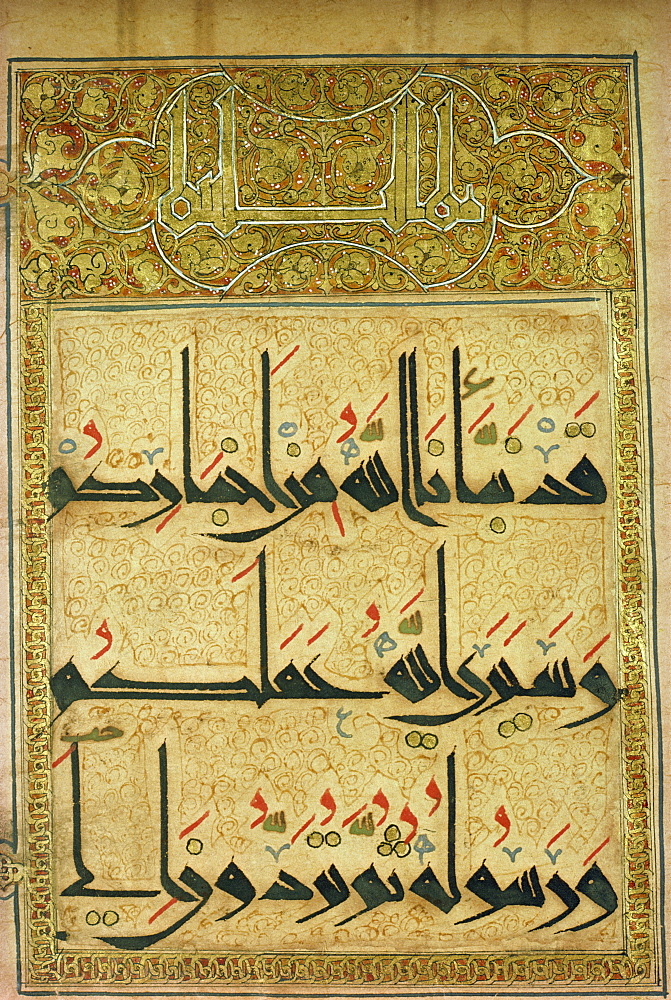 قَدْ نَبَّأَنَا اللَّهُ مِنْ أَخْبَارِكُمْ
وَسَيَرَى اللَّهُ عَمَلَكُمْ
وَرَسُولُهُ ثُمَّ تُرَدُّونَ إِلَى